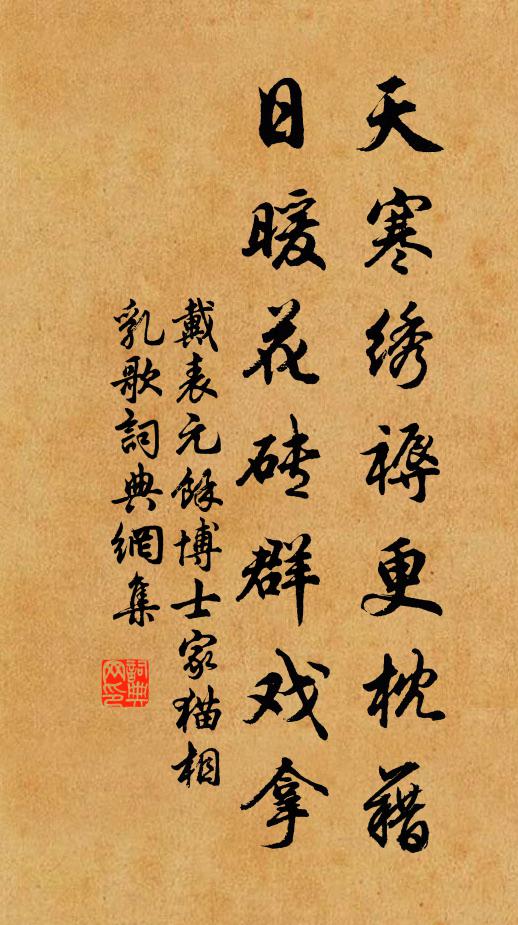 天寒绣褥更枕藉
日暖花砖群戏拿
戴表元餘博士家猫相
乳歌詞典網集
詞典
网印